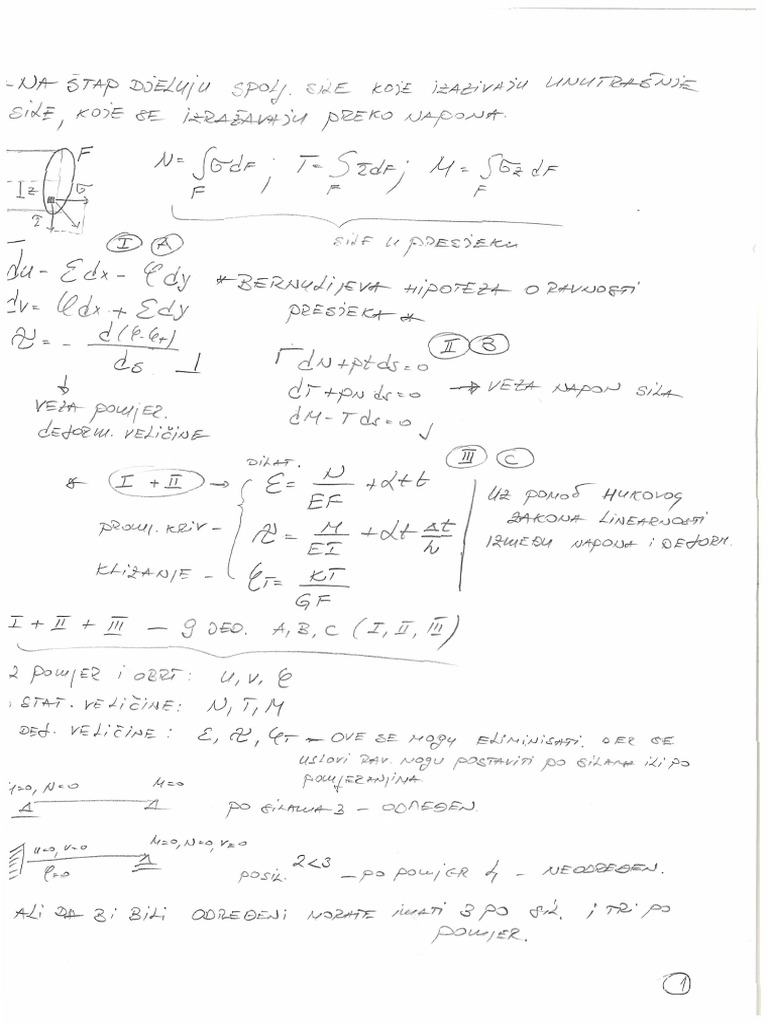 -NA ŠTAP DJELUJU SPOLJ. SILE KOJE IZAZIVAJU UNUTRAŠNJE
SILE, KOJE SE IZRAŽAVAJU PREKO NAPONA.
F
I z σ
τ
N = ∫σdF ; T = ∫τdF ; M = ∫σz dF
F F F
SILE U PRESJEKU
I A
du - εdx - φdy * BERNULIJEVA HIPOTEZA O RAVNOSTI
dv = φdx + εdy PRESJEKA *
ϰ = - d(φ-φT)/ds
II B
dN + pt ds = 0
dT + pN ds = 0 → VEZA NAPON SILA
dM - T ds = 0
VEZA POMJER.
DEFORM. VELIČINE
* I + II →
DILAT. ε = N/EF + αt t
III C
PROMJ. KRIV - ϰ = M/EI + αt Δt/h
KLIZANJE - φT = KT/GF
UZ POMOĆ HUKOVOG
ZAKONA LINEARNOSTI
IZMEĐU NAPONA I DEFORM.
I + II + III — 9 JED. A, B, C (I, II, III)
2 POMJER I OBRT: u, v, φ
STAT. VELIČINE: N, T, M
DEF. VELIČINE: ε, ϰ, φT — OVE SE MOGU ELIMINISATI. JER SE
USLOVI RAV. MOGU POSTAVITI PO SILAMA ILI PO
POMJERANJIMA.
=0, N=0 M=0
PO SILAMA 3 - ODREĐEN.
u=0, v=0 M=0, N=0, v=0
φ=0
PO SIL. 2<3 — PO POMJER 4 - NEODREĐEN.
ALI DA BI BILI ODREĐENI MORATE IMATI 3 PO SIL. I TRI PO
POMJER.
1